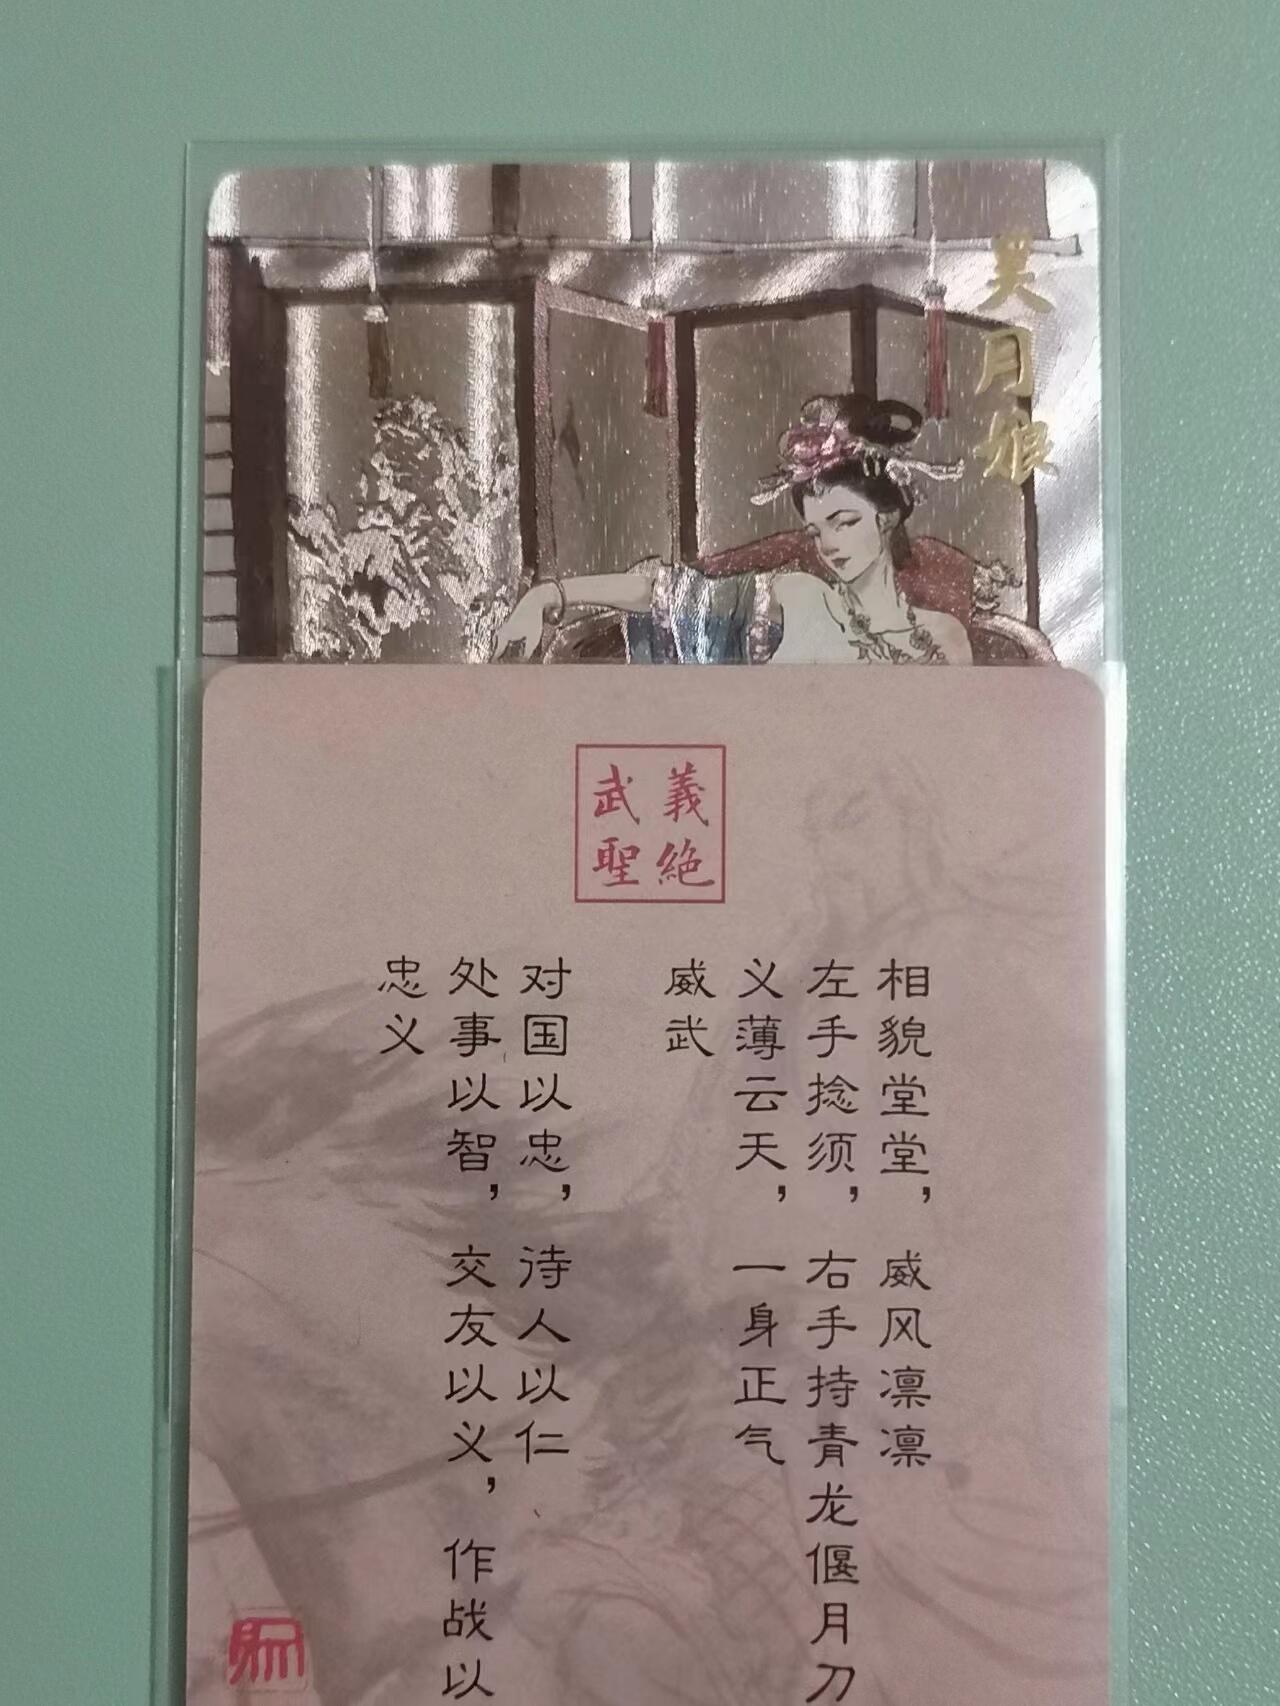 吴月娘
義絶
武聖
相貌堂堂，威风凛凛
左手捻须，右手持青龙偃月刀
义薄云天，一身正气
威武
对国以忠，待人以仁
处事以智，交友以义，作战以
忠义